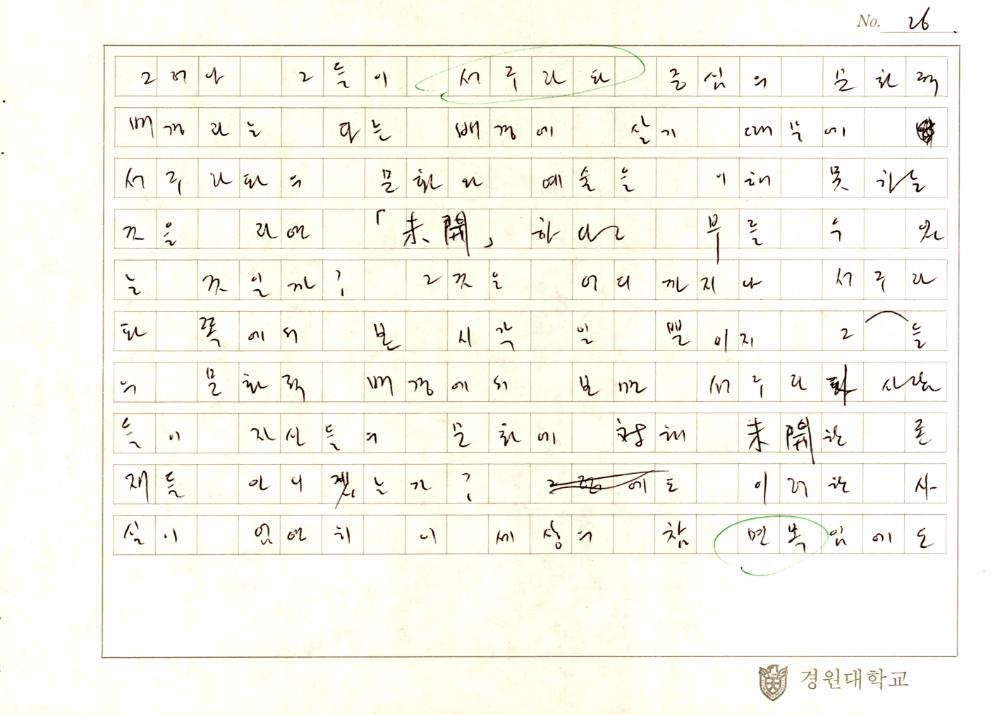 No. 26
그러나 그들이 서구라파 중심의 문화적
배경과는 다른 배경에 살기 때문에
서구라파의 문화와 예술을 이해 못 하는
것을 과연 「未開」하다고 부를 수 있
는 것일까? 그것은 어디까지나 서구라
파 쪽에서 본 시각일 뿐이지 그들
의 문화적 배경에서 보면 서구라파 사람
들이 자신들의 문화에 대해 未開한 존
재들 아니겠는가? 이러한 사
실이 엄연히 이 세상의 참 면목임에도
경원대학교